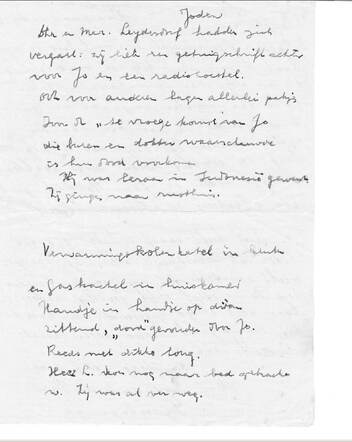 Joden
Dhr en Mevr. Leydesdorf hadden zich
vergast: zij liet een getuigschrift achter
voor Jo en een radiotoestel.
Ook voor anderen lagen allerlei pakjes
Door de "te vroege komst van Jo
die buren en dokter waarschuwde
is hun dood voorkomen
Hij was leraar in Indonesië geweest
Zij gingen naar rusthuis.
Verwarmingskolenketel in keuken
en gaskachel in huiskamer
Handje in handje op divan
zittend, "dood" gevonden door Jo.
Reeds met dikke tong.
Heer L. kon nog naar bed gebracht
w. Zij was al ver weg.